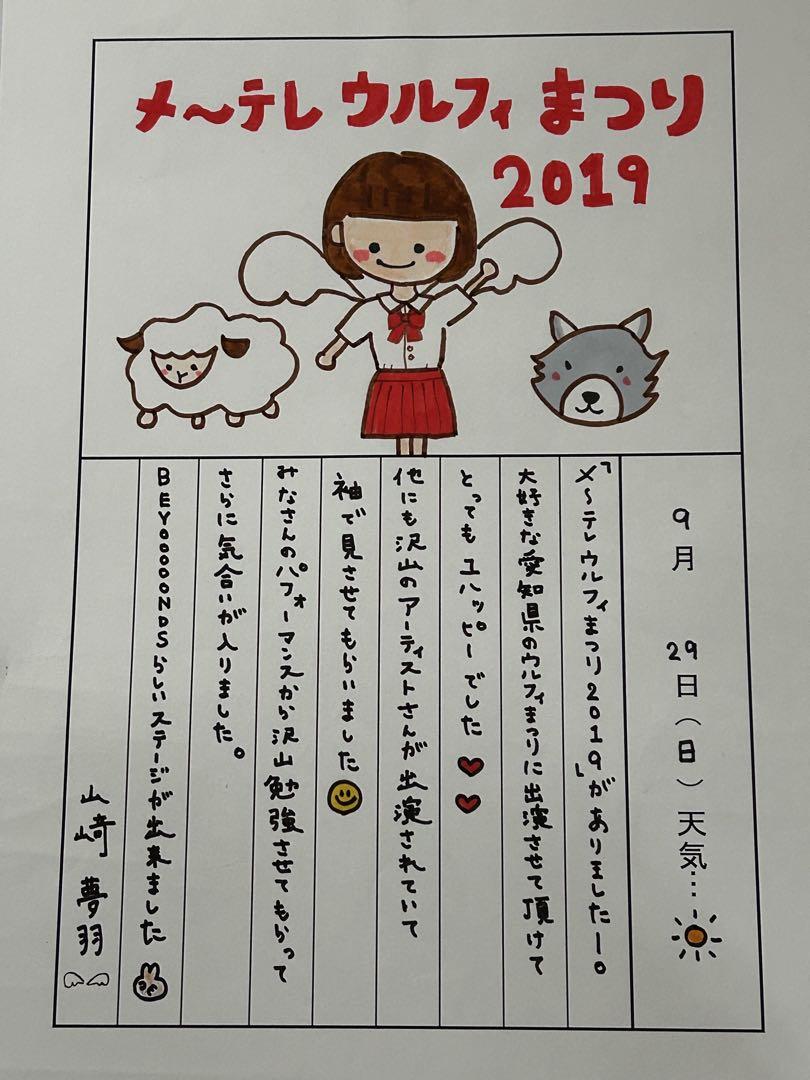 メ〜テレ ウルフィ まつり
2019
9月 29日(日)天気…
「メ〜テレウルフィまつり2019」がありましたー。
大好きな愛知県のウルフィまつりに出演させて頂けて
とっても ユハッピーでした
他にも沢山のアーティストさんが出演されていて
袖で見させてもらいました
みなさんのパフォーマンスから沢山勉強させてもらって
さらに気合いが入りました。
BEYOOOOONDSらしいステージが出来ました
山﨑 夢羽